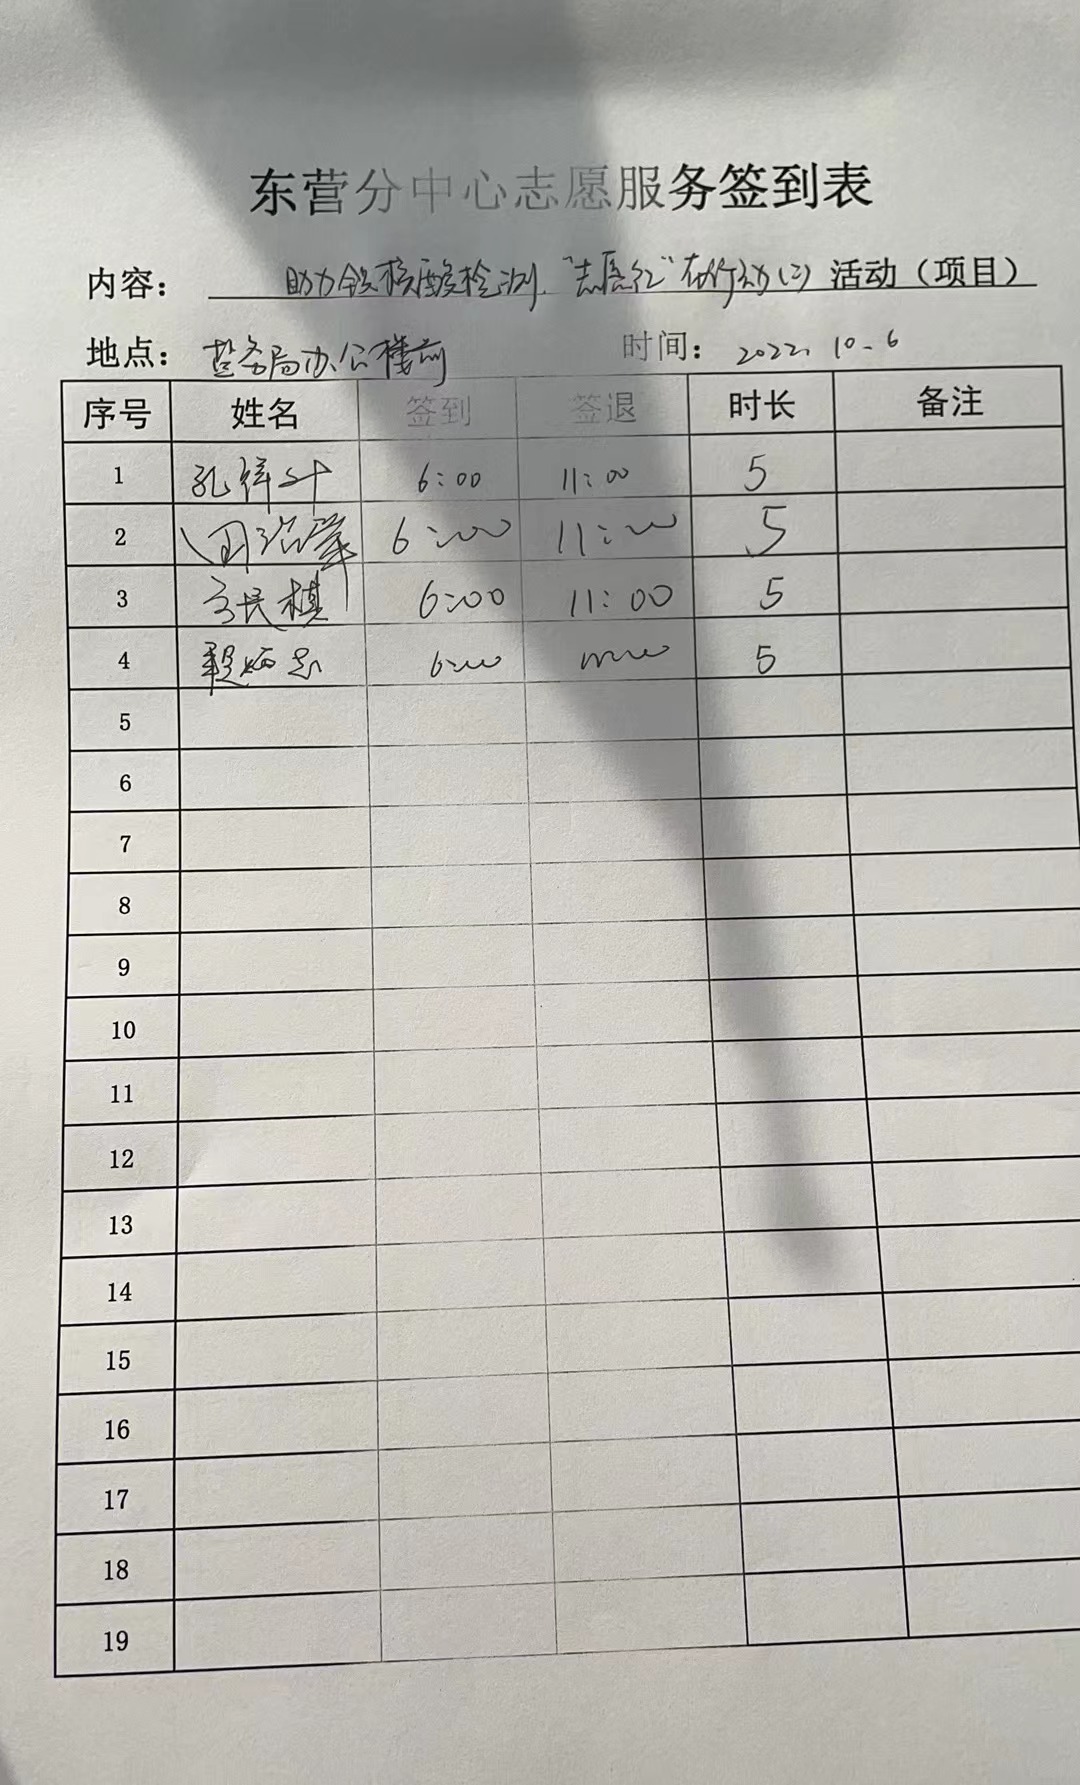 东营分中心志愿服务签到表
内容： 助力全员核酸检测，“志愿红”在行动(二) 活动（项目）
地点： 盐务局办公楼前 时间： 2022.10.6
序号 姓名 签到 签退 时长 备注
1 孔祥叶 6:00 11:00 5
2 6:00 11:00 5
3 6:00 11:00 5
4 6:00 11:00 5
5
6
7
8
9
10
11
12
13
14
15
16
17
18
19